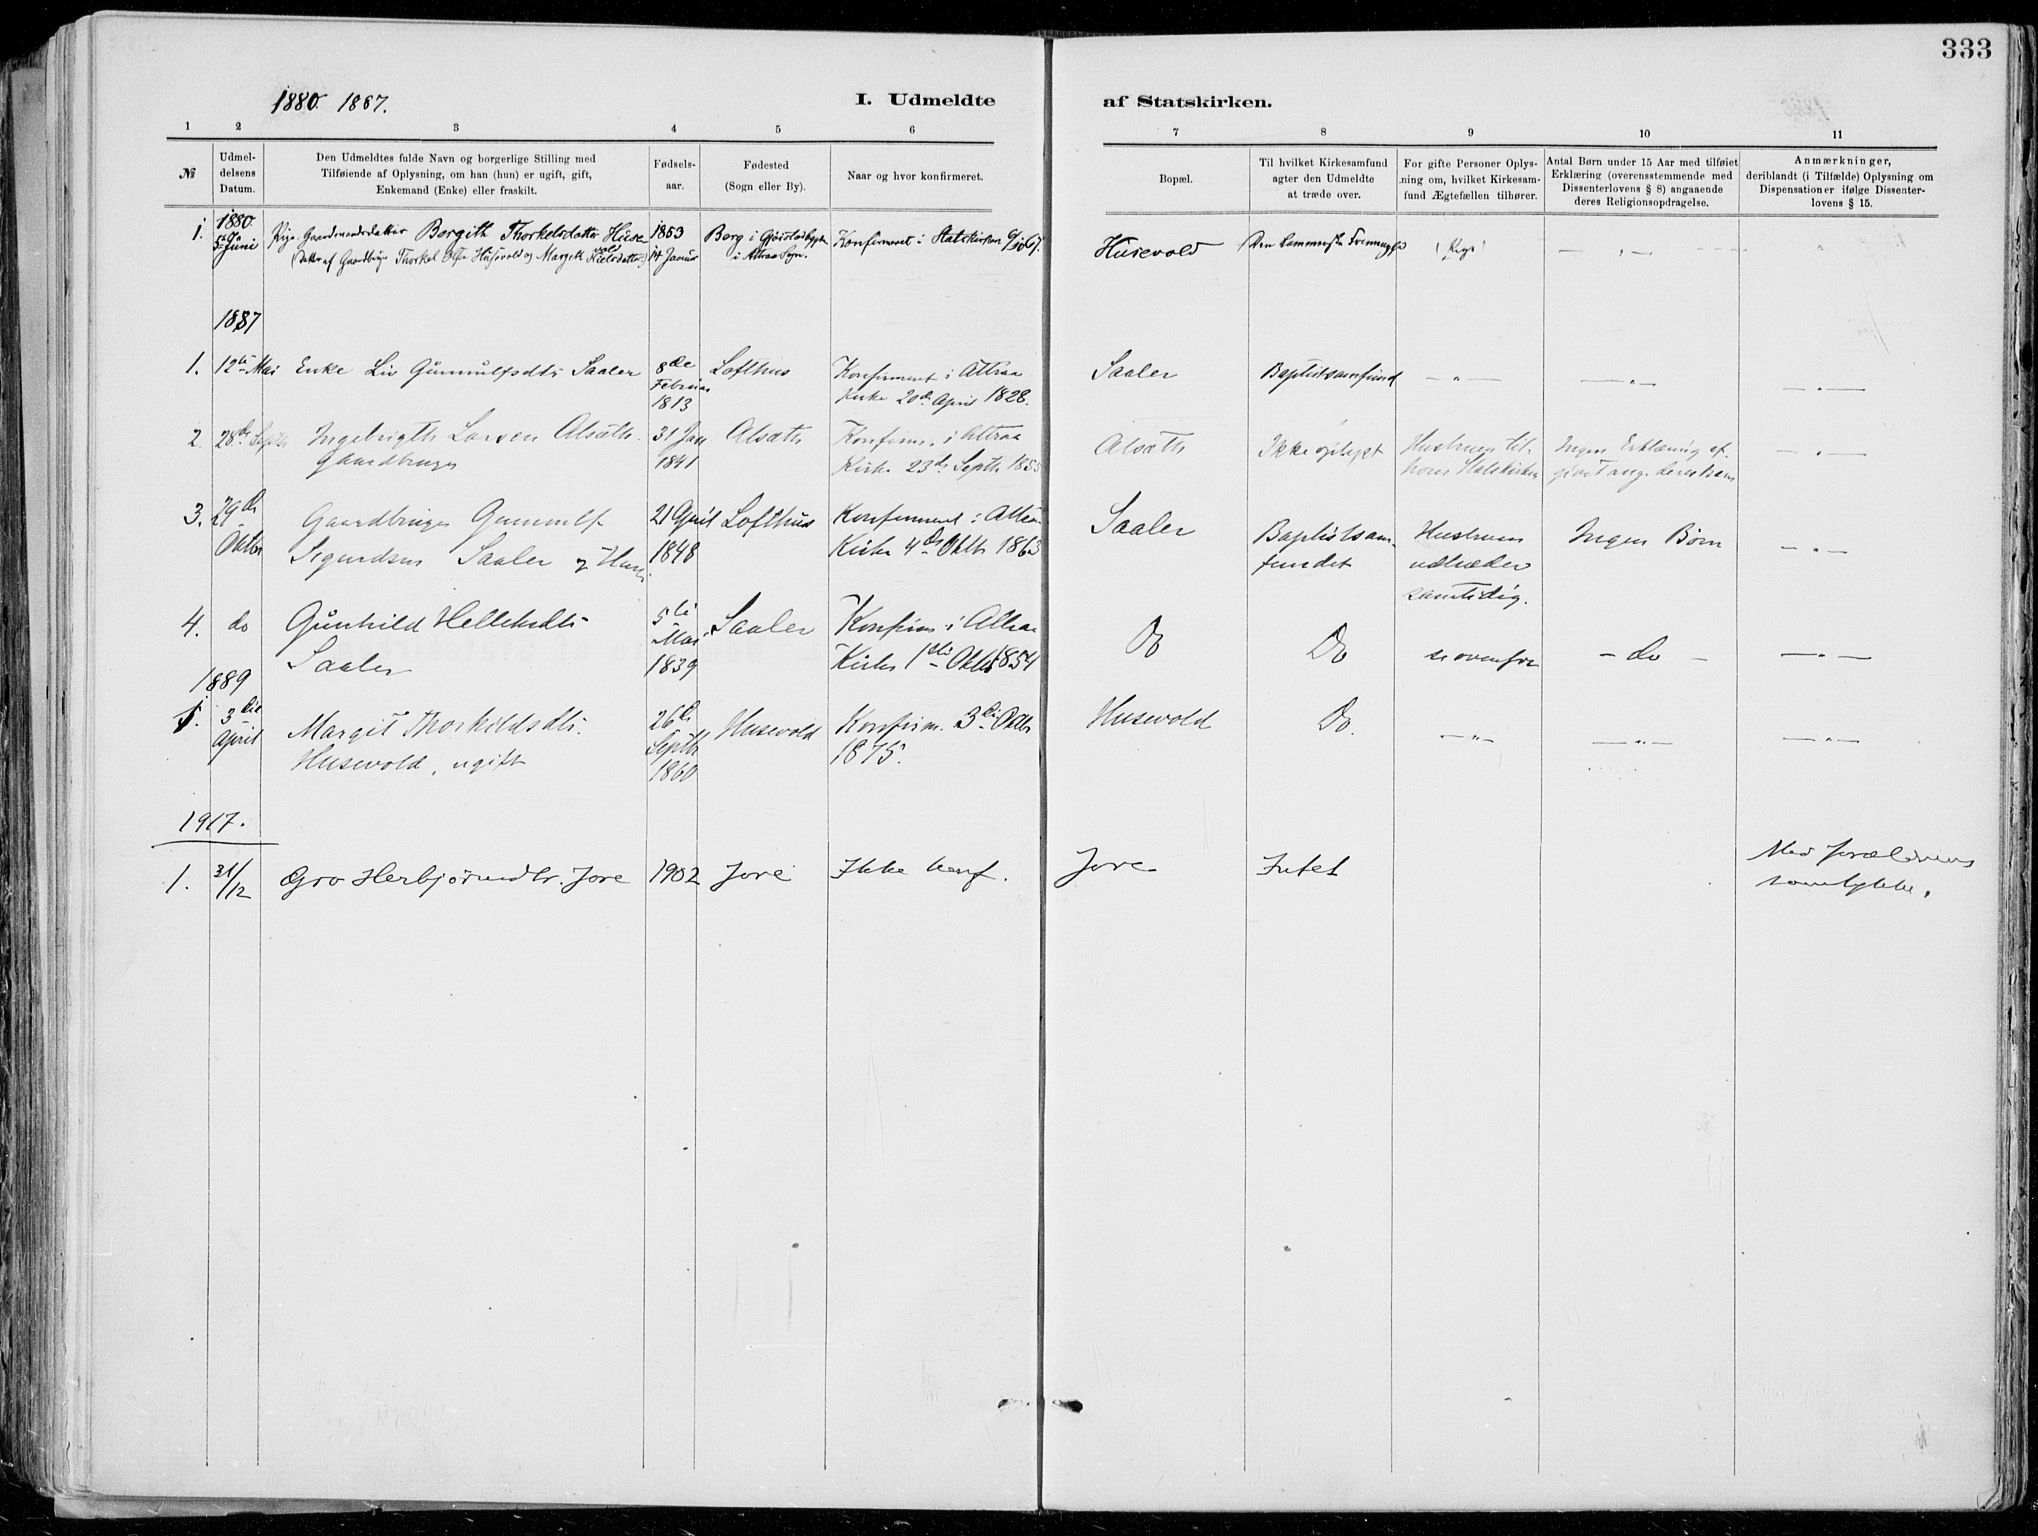 333
1880. 1887.
I. Udmeldte af Statskirken.
1 2 3 4 5 6 7 8 9 10 11
№
Udmel-
delsens
Datum.
Den Udmeldtes fulde Navn og borgerlige Stilling med
Tilføiende af Oplysning, om han (hun) er ugift, gift,
Enkemand (Enke) eller fraskilt.
Fødsels-
aar.
Fødested
(Sogn eller By).
Naar og hvor konfirmeret.
Bopæl.
Til hvilket Kirkesamfund
agter den Udmeldte
at træde over.
For gifte Personer Oplys-
ning om, hvilket Kirkesam-
fund Ægtefællen tilhører.
Antal Børn under 15 Aar med tilføiet
Erklæring (overensstemmende med
Dissenterlovens § 8) angaaende
deres Religionsopdragelse.
Anmærkninger,
deriblandt (i Tilfælde) Oplysning om
Dispensationer ifølge Dissenter-
lovens § 15.
1880.
1. 5te Juni
Pige Gaardmandsdatter Borgith Thorkelsdatter Huse-
vold
(Datter af Gaardbruger Thorkel Husevold og Margith
1853
14 Januar
Borg i
i Attraa Sogn.
Konfirmeret i Statskirken
Husevold
Den
Pige
1887
1. 12te Mai Enke Liv Gunnulfsdtr Saaler
8de
Februar
1813
Lofthus
Konfirmeret i Attraa
Kirke 20de April 1828.
Saaler Baptistsamfund — " — — " — — " —
2. 28de Septbr Ingebrigth Larsen Alsæth.
Gaardbruger
31 Jan
1841
Alsæth
Konfirm. i Attraa
Kirke 23de Septbr 1855
Alsæth Ikke oplyst
Hustruen til-
hører Statskirken
Ingen Erklæring af-
givet ang. deres Børn
— " —
3. 29de
Oktbr
Gaardbruger Gunnulf
Sigurdsen Saaler og Hustr.
21 April
1848
Lofthus
Konfirmeret i Attraa
Kirke 4de Oktbr 1863
Saaler
Baptistsam-
fundet
Hustruen
udtræder
samtidig.
Ingen Børn
— " —
4. do Gunhild Helleksdtr
Saaler
5te
Mai
1839
Saaler
Konfirm. i Attraa
Kirke 1ste Oktbr 1854
Do Do se ovenfor — do — — " —
1889
1. 3die
April
Margit Thorkildsdtr.
Husevold, ugift
26de
Septbr
1860
Husevold
Konfirm. 3die Oktbr
1875.
Husevold Do. — " — — " — — " —
1917.
1. 31/12 Gro Herbjørnsdtr. Jore 1902 Jore Ikke konf. Jore Intet
Med forældrenes
samtykke.